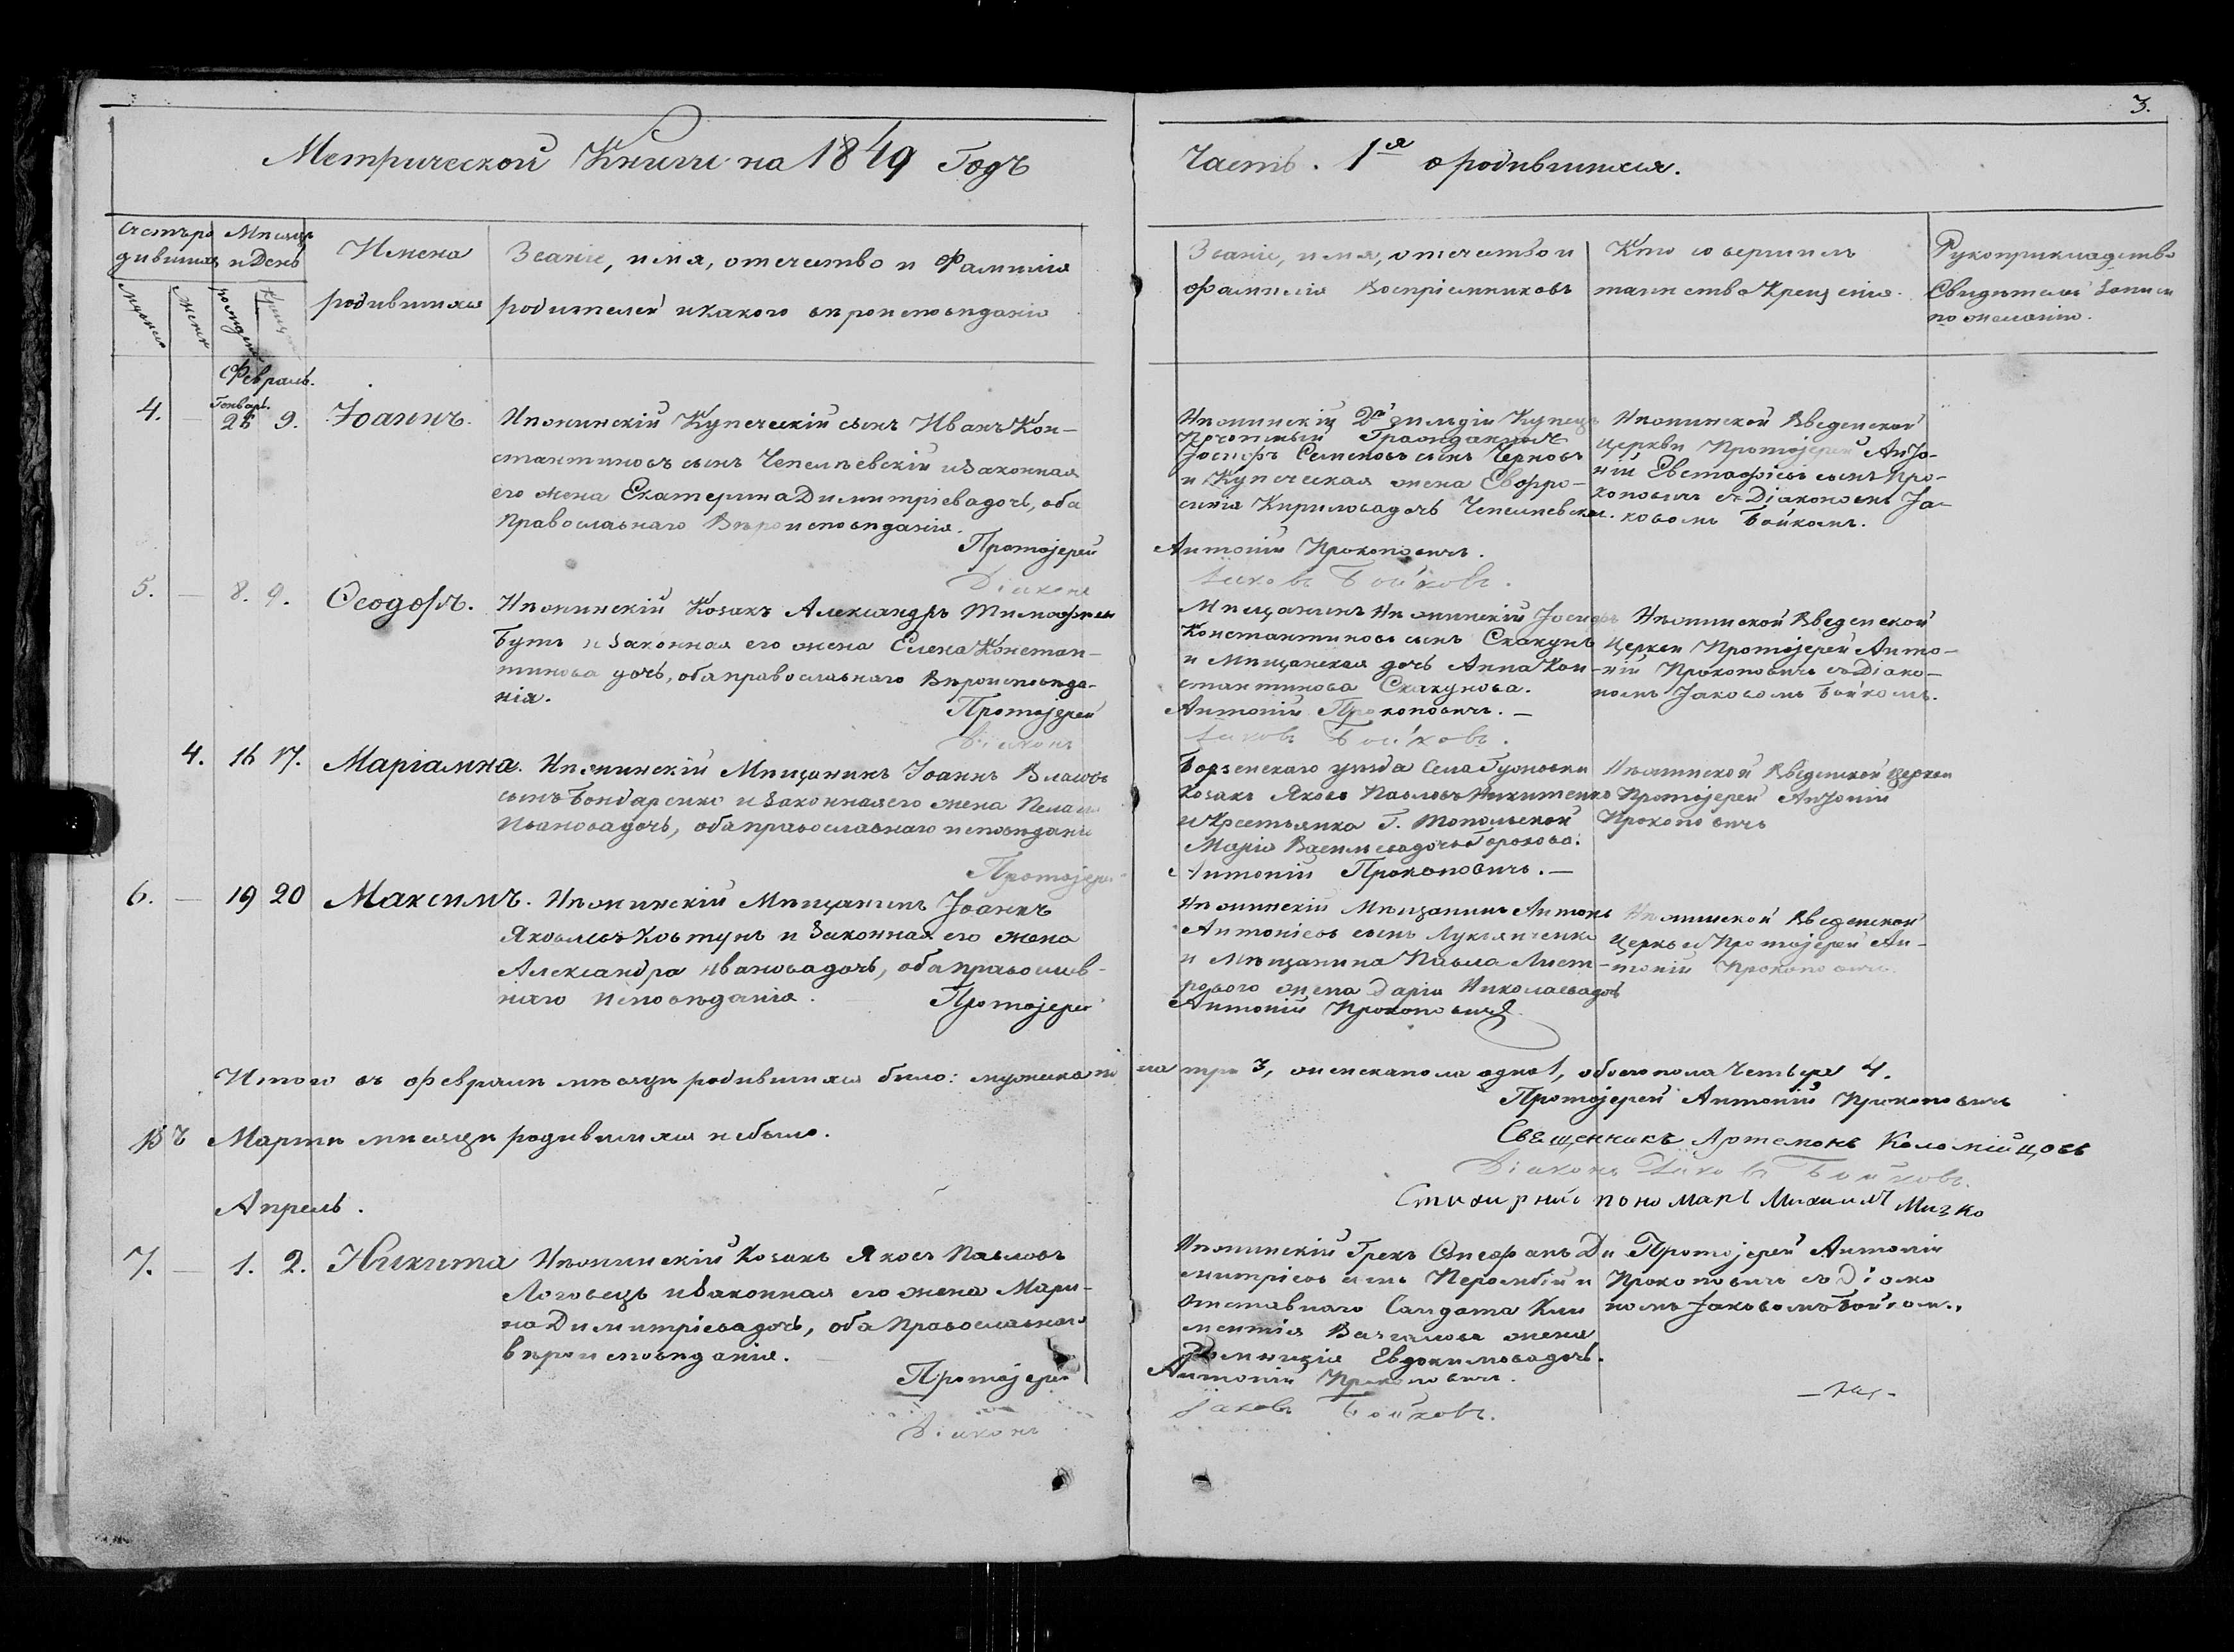 3.
Метрической Книги на 1849 Годъ
Часть. 1я о родившихся.
Счетъ ро Мѣсяцъ
дившихся и День
Имена
родившихся
Званіе, имя, отечество и Фамилія
родителей и какого вѣроисповѣданія
Званіе, имя, отечество и
фамилія Воспріемниковъ
Кто совершилъ
таинство Крещенія.
Рукоприкладство
Свидѣтелей записи
по желанію.
Февраль.
Генварь.
4. — 26 9. Іоаннъ. Нѣжинскій Купеческій сынъ Иванъ Кон-
стантиновъ сынъ Чепелѣевскій и законная
его жена Екатерина Димитріева дочь, оба
православнаго Вѣроисповѣданія.
Протоіерей
Діаконъ
Нѣжинскій 2й гильдіи Купецъ
Почотный Гражданинъ
Іосифъ Семеновъ сынъ Черновъ
и Купеческая жена Евфро-
синія Кирилова дочь Чепелѣевская.
Антоній Прокоповичъ.
Іаковъ Бойковъ.
Нѣжинской Введенской
церкви Протоіерей Анто-
ній Евстафіевъ сынъ Про-
коповичъ съ Діакономъ Іа-
ковомъ Бойкомъ.
5. — 8. 9. Ѳеодоръ. Нѣжинскій Козакъ Александръ Тимофѣевъ
Бутъ и законная его жена Елена Констан-
тинова дочь, оба православнаго Вѣроисповѣда-
нія.
Протоіерей
Діаконъ
Мѣщанинъ Нѣжинскій Іосифъ
Константиновъ сынъ Скакунъ
и Мѣщанская дочь Анна Кон-
стантинова Скакунова.
Антоній Прокоповичъ. —
Іаковъ Бойковъ.
Нѣжинской Введенской
Церкви Протоіерей Анто-
ній Прокоповичъ съ Діако-
номъ Іаковомъ Бойкомъ.
4. 16 17. Маріамна. Нѣжинскій Мѣщанинъ Іоаннъ Власовъ
сынъ Бондаренко и законная его жена
Иванова дочь, оба православнаго исповѣданія
Протоіерей
Борзенскаго уѣзда Села
Козакъ Яковъ Павловъ Никитенко
и Крестьянка Г. Топольской
Марія Васильева дочь Горохова.
Антоній Прокоповичъ. —
Нѣжинской Введенской церкви
Протоіерей Антоній
Прокоповичъ
6. — 19 20 Максимъ. Нѣжинскій Мѣщанинъ Іоаннъ
Яковлевъ Ковтунъ и законная его жена
Александра Иванова дочь, оба православ-
наго исповѣданія.
Протоіерей
Нѣжинскій Мѣщанинъ Антонъ
Антоніевъ сынъ Лукьянченко
и Мѣщанина Павла
жена Дарія Николаева дочь
Антоній Прокоповичъ
Нѣжинской Введенской
Церкви Протоіерей Ан-
тоній Прокоповичъ
Итого въ февралѣ мѣсяцѣ родившихся было: мужска пола три 3, женска пола одна 1, обоего пола Четыре 4.
Протоіерей Антоній Прокоповичъ
Въ Мартѣ мѣсяцѣ родившихся небыло.
Священникъ Артемонъ Коломійцовъ
Діаконъ Іаковъ Бойковъ.
Стихарний пономарь Михаилъ Мизко
Апрель.
7. — 1. 2. Никита Нѣжинскій Козакъ Яковъ Павловъ
Логовецъ и законная его жена Мари-
на Димитріева дочь, оба Православнаго
вѣроисповѣданія.
Протоіерей
Діаконъ
Нѣжинскій Грекъ Стефанъ Ди-
митріевъ сынъ и
отставнаго Салдата Кли-
ментія жена
Евдокимова дочь.
Антоній Прокоповичъ.
Іаковъ Бойковъ.
Протоіерей Антоній
Прокоповичъ съ Діако
номъ Іаковомъ Бойком.